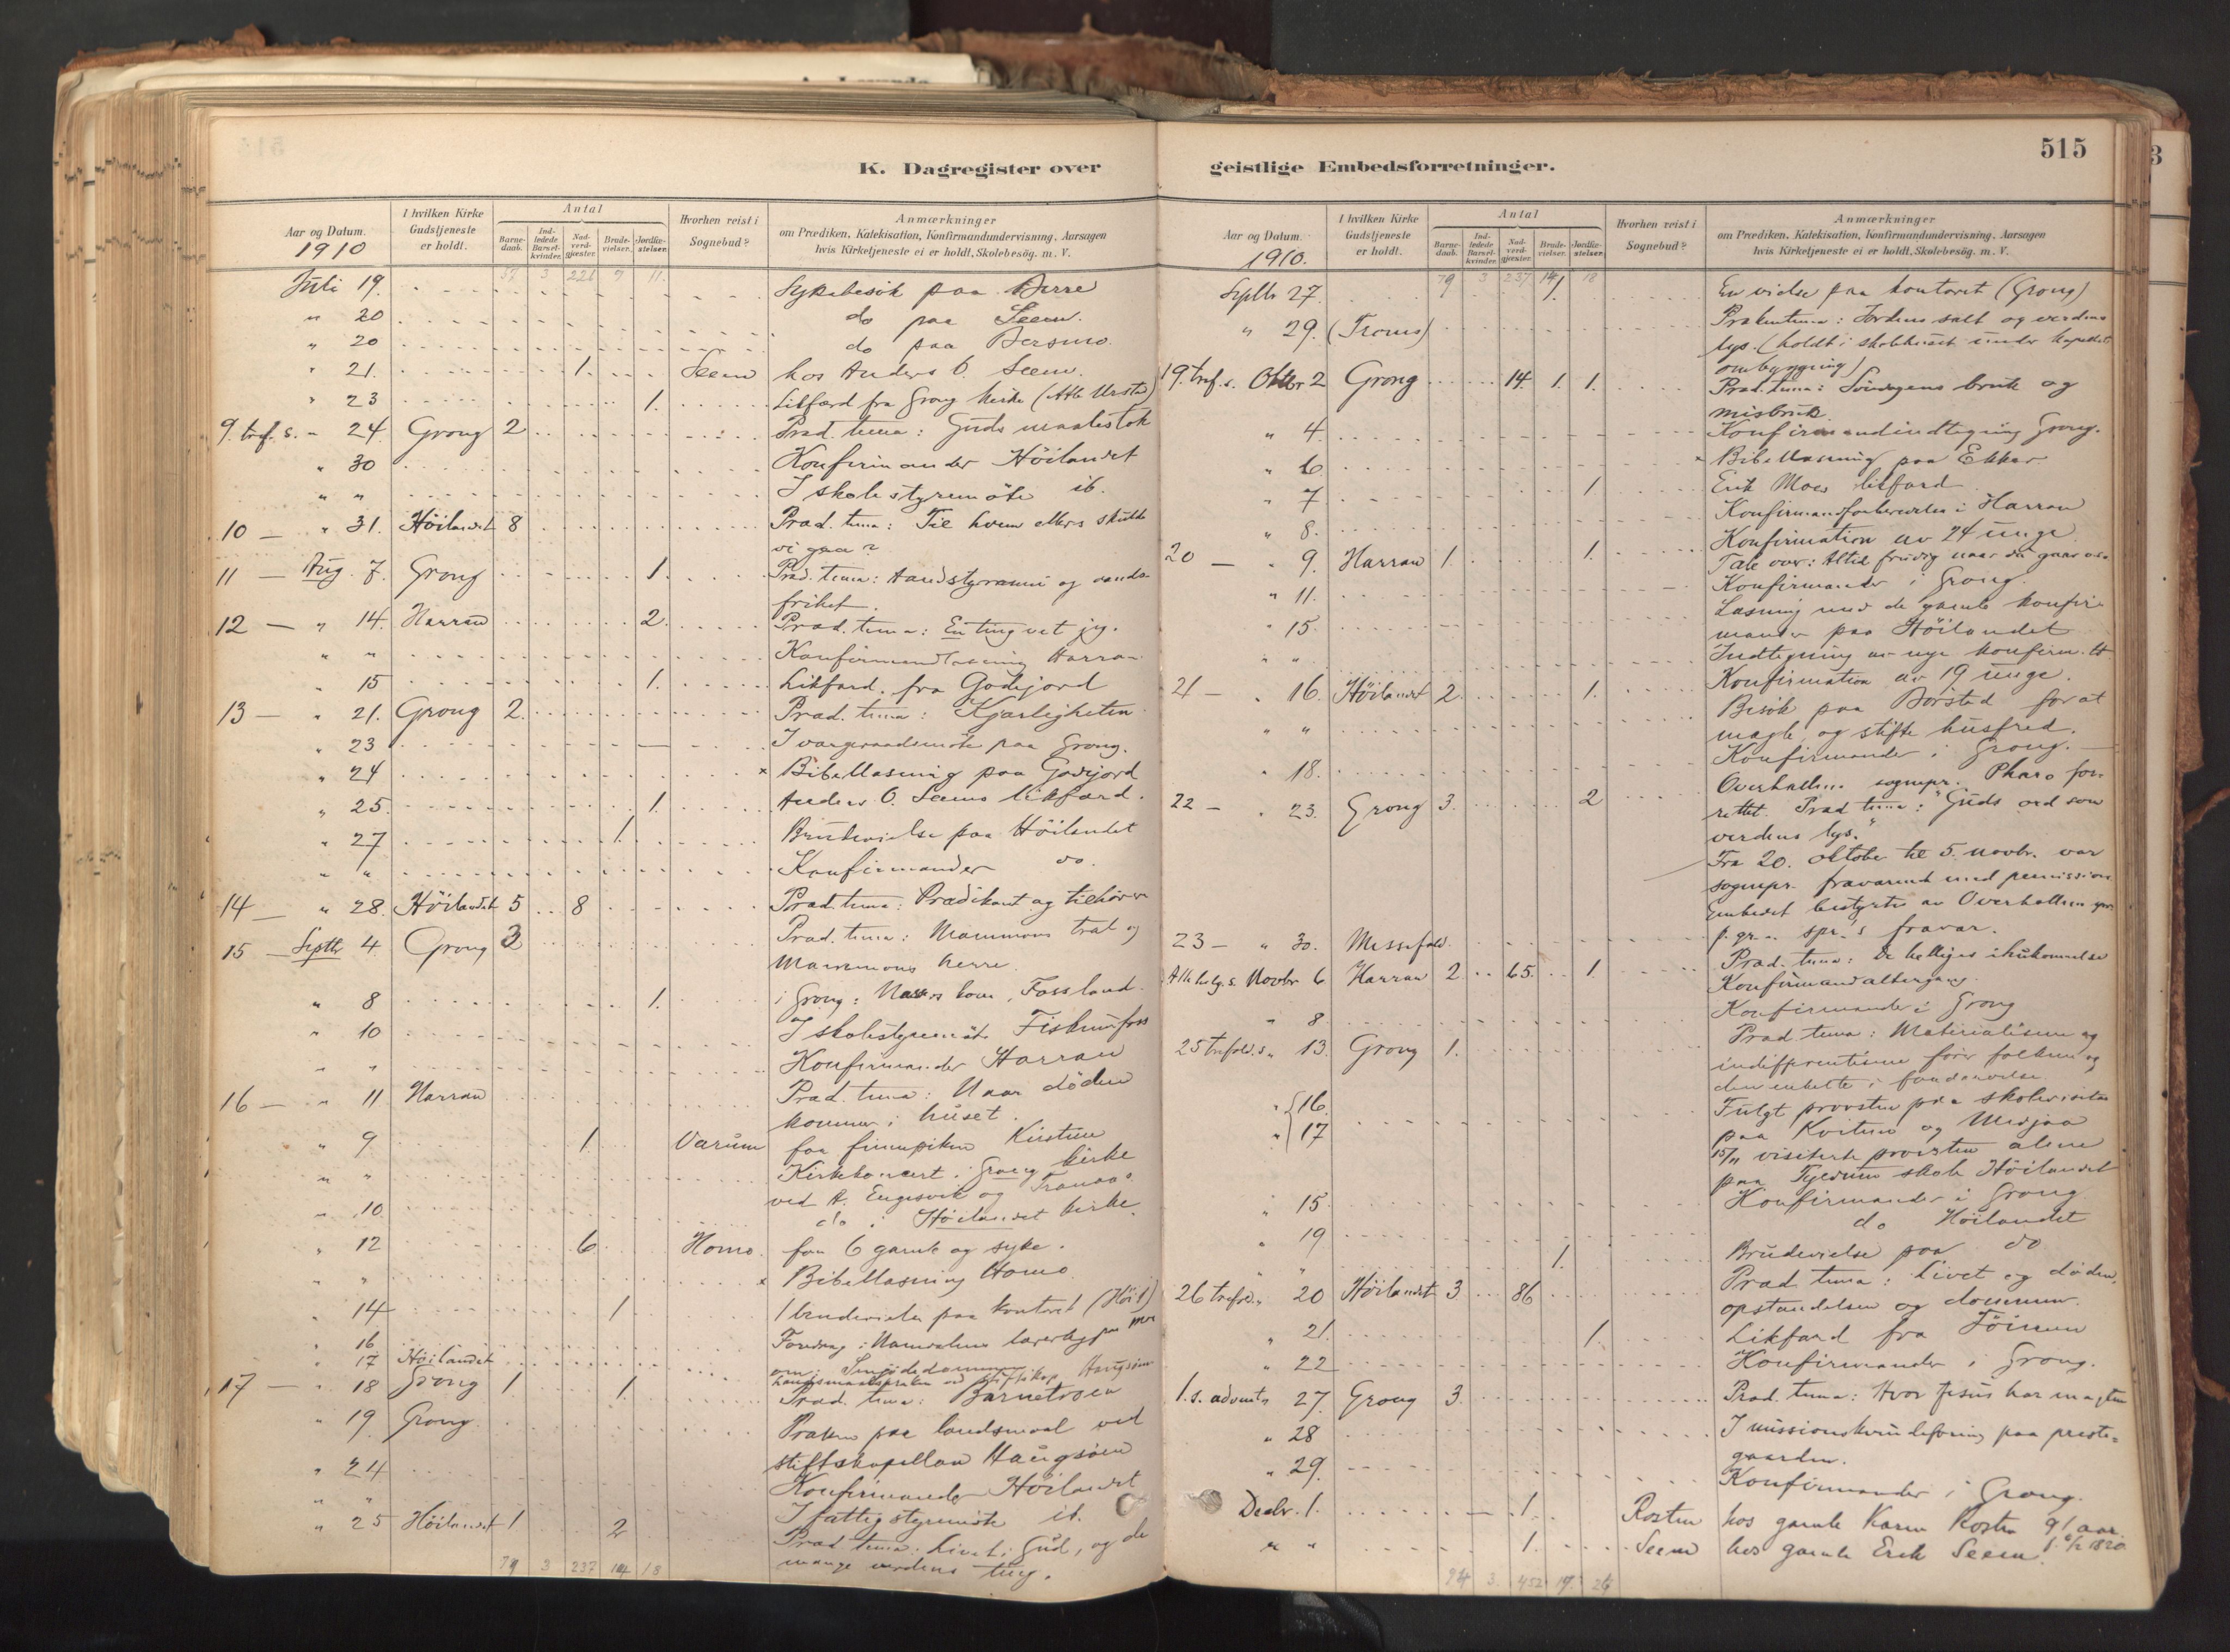 515
K. Dagregister over geistlige Embedsforretninger.
Aar og Datum.
1910
I hvilken Kirke Gudstjeneste er holdt.
Antal
Barne-daab.
Ind-ledede Barsel-kvinder.
Nad-verd-gjæster.
Brude-vielser.
Jordfæ-stelser.
Hvorhen reist i Sognebud?
Anmærkninger
om Prædiken, Katekisation, Konfirmandundervisning, Aarsagen
hvis Kirketjeneste ei er holdt, Skolebesög. m. V.
3 226 11.
Juli 19. Sykebesök paa
" 20 do paa Seem.
" 20 do paa Bersmo.
" 21. 1. Seem hos Anders O. Seem.
" 23 1. Likfærd fra Grong kirke
9. tref. s. " 24. Grong 2 Præd. tema: Guds maalestok
" 30 Konfirmander Höilandet
" " I skolestyremöte ib.
10 — " 31. Höilandet 8 Præd. tema: Til hvem ellers skulde
vi gaa?
11 — Aug. 7. Grong 1. Præd. tema: Aandstyranni og aands-
frihet.
12 — " 14. Harran 2. Præd. tema: En ting vet jeg.
" " Konfirmandlæsning Harran
" 15 1. Likfærd fra Godejord
13 — " 21. Grong 2. Præd. tema: Kjærligheten
" 23 I vergeraadsmöte paa Grong.
" 24 × Bibellæsning paa Godejord
" 25. 1. Anders O. Seems likfærd.
" 27 1. Brudevielse paa Höilandet
" " Konfirmander do.
14 — " 28. Höilandet 5 8 Præd. tema: Prædikant og tilhörer
15 — Septbr 4 Grong 3 Præd. tema: Mammons træl og
Mammons herre.
" 8 1. i Grong: kone, Fossland.
" 10 I skolestyremöte Fiskumfoss
" " Konfirmander Harran
16 — " 11 Harran Præd. tema: Naar döden
kommer i huset.
" 9 1. Varum for finnepiken Kirstine
" " Kirkekoncert i Grong kirke
ved A. Engesvik og Tranaas
" 10. do i Höilandet kirke.
" 12 6 Homo. for 6 gamle og syke.
" " × Bibellæsning Homo.
" 14 1. 1 brudevielse paa kontoret (Höil.)
" 16 Foredrag i Namdalens lærerlag
" 17 Höilandet
17 — " 18 Grong 1 1. Præd. tema: Barnetroen
" 19. Grong. Præken paa landsmaal ved
stiftskapellan Haugsöen
" 24 Konfirmander Höilandet
" " I fattigstyremöte ib.
" 25 Höilandet 1 2 Præd. tema: Livet i Gud, og de
mange verdens ting.
79 3 237 14 18
Aar og Datum.
1910.
I hvilken Kirke Gudstjeneste er holdt.
Antal
Barne-daab.
Ind-ledede Barsel-kvinder.
Nad-verd-gjæster.
Brude-vielser.
Jordfæ-stelser.
Hvorhen reist i Sognebud?
Anmærkninger
om Prædiken, Katekisation, Konfirmandundervisning, Aarsagen
hvis Kirketjeneste ei er holdt, Skolebesög. m. V.
79 3 237 14 18
Septbr 27. 1. En vielse paa kontoret (Grong)
" 29. Jordens salt og verdens
lys. (holdt i skolehuset under kapellets
ombygning)
19. tref. s. Oktbr 2 Grong 14. 1. 1. Præd. tema: Söndagens bruk og
misbruk.
" 4. Konfirmandindtegning Grong.
" 6 × Bibellæsning paa Ekker
" 7 1 Erik Moes likfærd
" 8. Konfirmandforberedelse i Harran
20 — " 9. Harran 1. 1. Konfirmation av 24 unge.
Tale over: Altid fridig naar du gaar osv.
" 11. Konfirmander i Grong.
" 15. Læsning med de gamle konfir-
mander paa Höilandet
" " Indtegning av nye konfirm. ib
21 — " 16. Höilandet 2. 1. Konfirmation av 19 unge.
" " Besök paa Börstad for at
mægle og stifte husfred.
" 18. Konfirmander i Grong.
22 — " 23. Grong 3. 2 Overhallens sognepr. Pharo for-
rettet. Præd tema: "Guds ord som
verdens lys."
Fra 20. oktober til 5. novbr. var
sognepr. fraværende med permission.
Embedet bestyrtes av Overhallens spr.
23 — " 30. Messefald. p. gr. a. spr.'s fravær.
Alle helg. s. Novbr 6 Harran 2 65. 1. Præd. tema: De helliges ihukommelse
Konfirmandaltergang.
" 8 Konfirmander i Grong
25 trefold. s. " 13. Grong 1. Præd. tema: Materialismen og
indifferentismen före folkene og
den enkelte i fordærvelse.
" 16. Fulgt provsten paa skolevisitas
" 17 paa Kvitem og Medjaa
15/11 visiterte provsten alene
paa skole Höilandet
" 15 Konfirmander i Grong
" 19 do Höilandet
" " 1. Brudevielse paa do
26 trefold. " 20 Höilandet 3 86 Præd. tema: Livet og döden,
opstandelsen og dommen.
" 21. 1. Likfærd fra
" 22 Konfirmander i Grong.
1. s. advent " 27. Grong 3. Præd. tema: Hvor Jesus har magten
" 28 I missionskvindeforening paa preste-
gaarden.
" 29. Konfirmander i Grong.
Decbr. 1. 1. Rosten hos gamle Karen Rosten 91 aar.
" " 1. Seem hos gamle Erik Seem. 1820
94 3. 452 17. 26